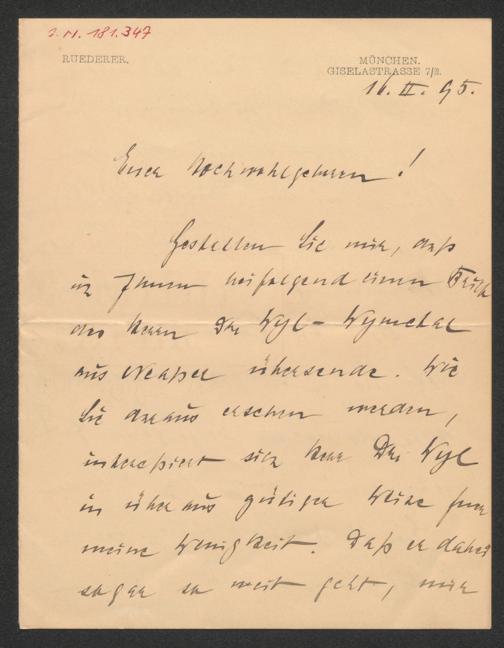 I. N. 181.347
RUEDERER.
MÜNCHEN.
GISELASTRASSE 7/2.
16. II. 95.
Euer Hochwohlgeboren!
Gestatten Sie mir, daß
ich Ihnen beifolgend einen Brief
des Herrn Dr. Wyl-Wymetal
aus Neapel übersende. Wie
Sie daraus ersehen werden,
interessiert sich Herr Dr. Wyl
in überaus gütiger Weise für
meine Wenigkeit. Daß er dabei
sogar so weit geht, mir